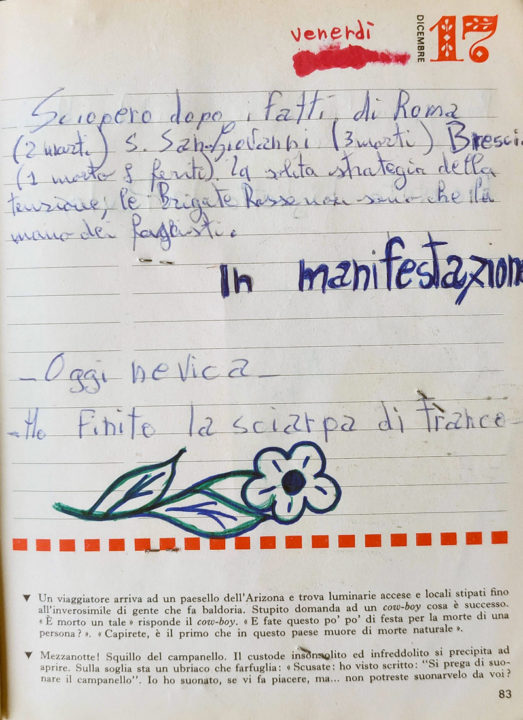 venerdì
DICEMBRE 17
Sciopero dopo i fatti di Roma
(2 morti) S. San Giovanni (3 morti) Bresci
(1 morto 8 feriti). la solita strategia della
tensione, le Brigate Rosse non sono che la
mano dei fascisti.
In manifestazione
- Oggi nevica -
- Ho finito la sciarpa di Franco -
▼ Un viaggiatore arriva ad un paesello dell'Arizona e trova luminarie accese e locali stipati fino
all'inverosimile di gente che fa baldoria. Stupito domanda ad un cow-boy cosa è successo.
« È morto un tale » risponde il cow-boy. « E fate questo po' po' di festa per la morte di una
persona? ». « Capirete, è il primo che in questo paese muore di morte naturale ».
▼ Mezzanotte! Squillo del campanello. Il custode insonnolito ed infreddolito si precipita ad
aprire. Sulla soglia sta un ubriaco che farfuglia: « Scusate: ho visto scritto: "Si prega di suo-
nare il campanello". Io ho suonato, se vi fa piacere, ma... non potreste suonarvelo da voi?
83